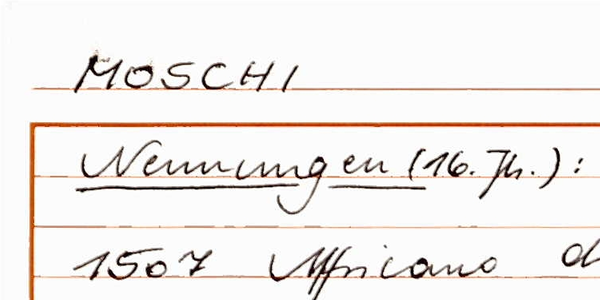 MOSCHI
Nennungen (16. Jh.):
1507 Affricano d